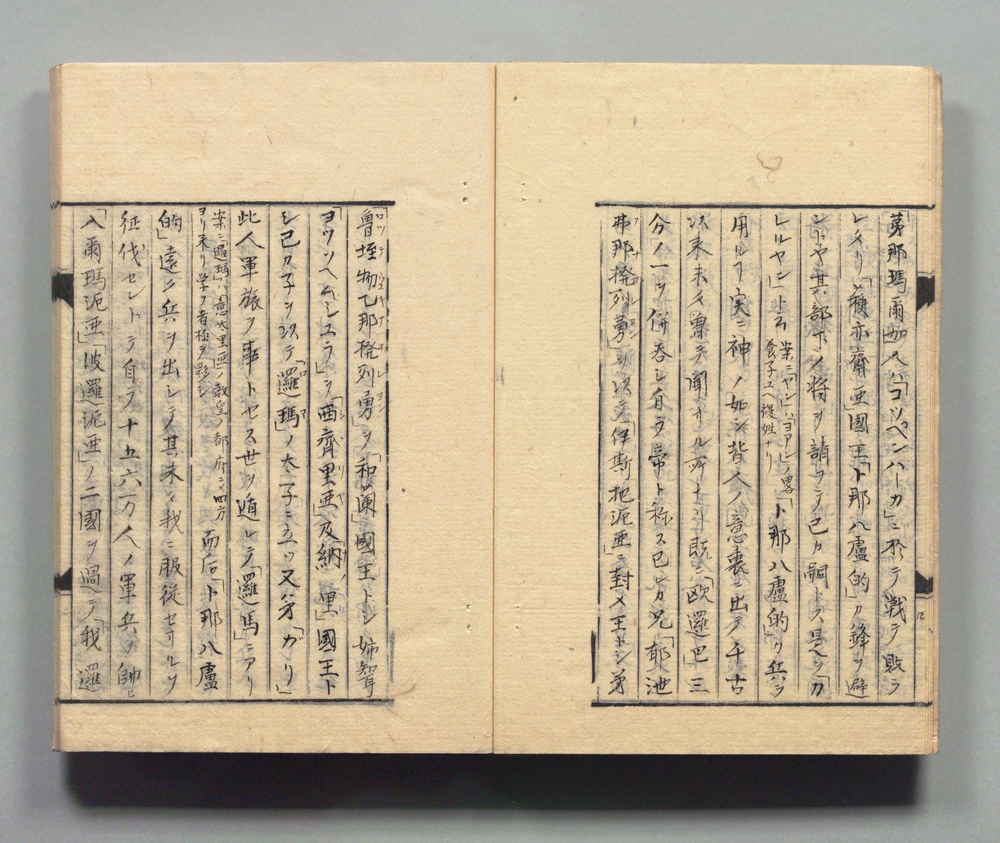 第那瑪爾加人ハ「コッペンハーガ」ニ於テ戦テ敗ラ
レタリ「穢亦齋亜」國王「ト那八盧的」カ鋒ヲ避
ンヤ其部下ノ将ヲ請フテ己カ嗣トス是ヲ「カ
レルヤン」ト云 案ニヤンハ「ヨアン」ノ畧 養子ユヘ複姓ナリ 「ト那八盧的」ク兵ヲ
用ルヿ実ニ神ノ如シ皆人ノ意表ニ出テ千古
以来未タ曽テ聞サル所ナリ既「欧邏巴」三
分ノ一ヲ併呑シ自ラ帝ト称ス己レカ兄「都池
弗那撥列勇」ヲ以テ「伊斯把泥亜」ニ封メ王トシ弟
「魯垤物乙那撥列勇」ヲ「和蘭」國王トシ姉聟
「ヨツヘムシユラ」ヲ「西齊里亜」及「納里」國王ト
シ己カ子ヲ以テ「邏瑪」ノ太子ニ立ツ又弟「ガリ」
此人軍旅ヲ事トセス世ヲ遁レテ「邏馬」ニアリ
案ニ邏瑪ハ意太里亜ノ教皇ノ都府ニメ四方
ヨリ来リ学フ者極テ夥シ 而后「ト那八盧
的」遠ク兵ヲ出シテ其未タ我ニ服従セサルヲ
征伐セントテ自ラ十五六万人ノ軍兵ヲ帥ヒ
「入爾瑪泥亜」「波邏泥亜」ノ二國ヲ過テ「我邏